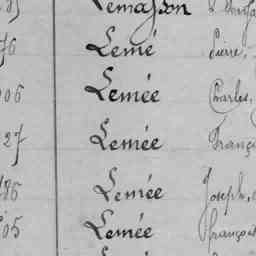 Lemasson
76 Lemé Pierre,
006 Lemée Charles,
27 Lemée Franç
186 Lemée Joseph,
05 Lemée François